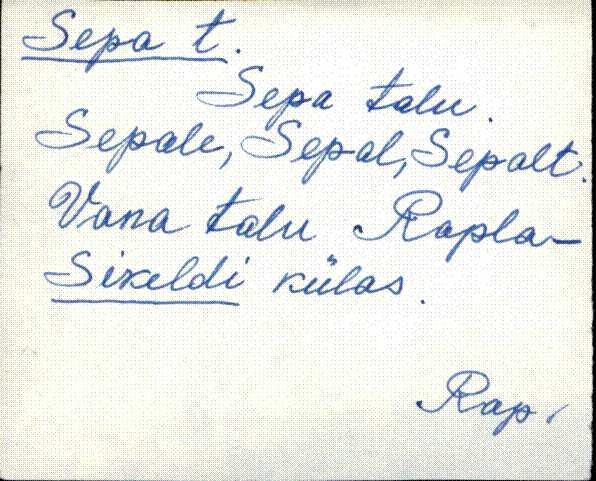 Sepa t.
Sepa talu.
Sepale, Sepal, Sepalt.
Vana talu Rapla-
Sikeldi külas.
Rap.